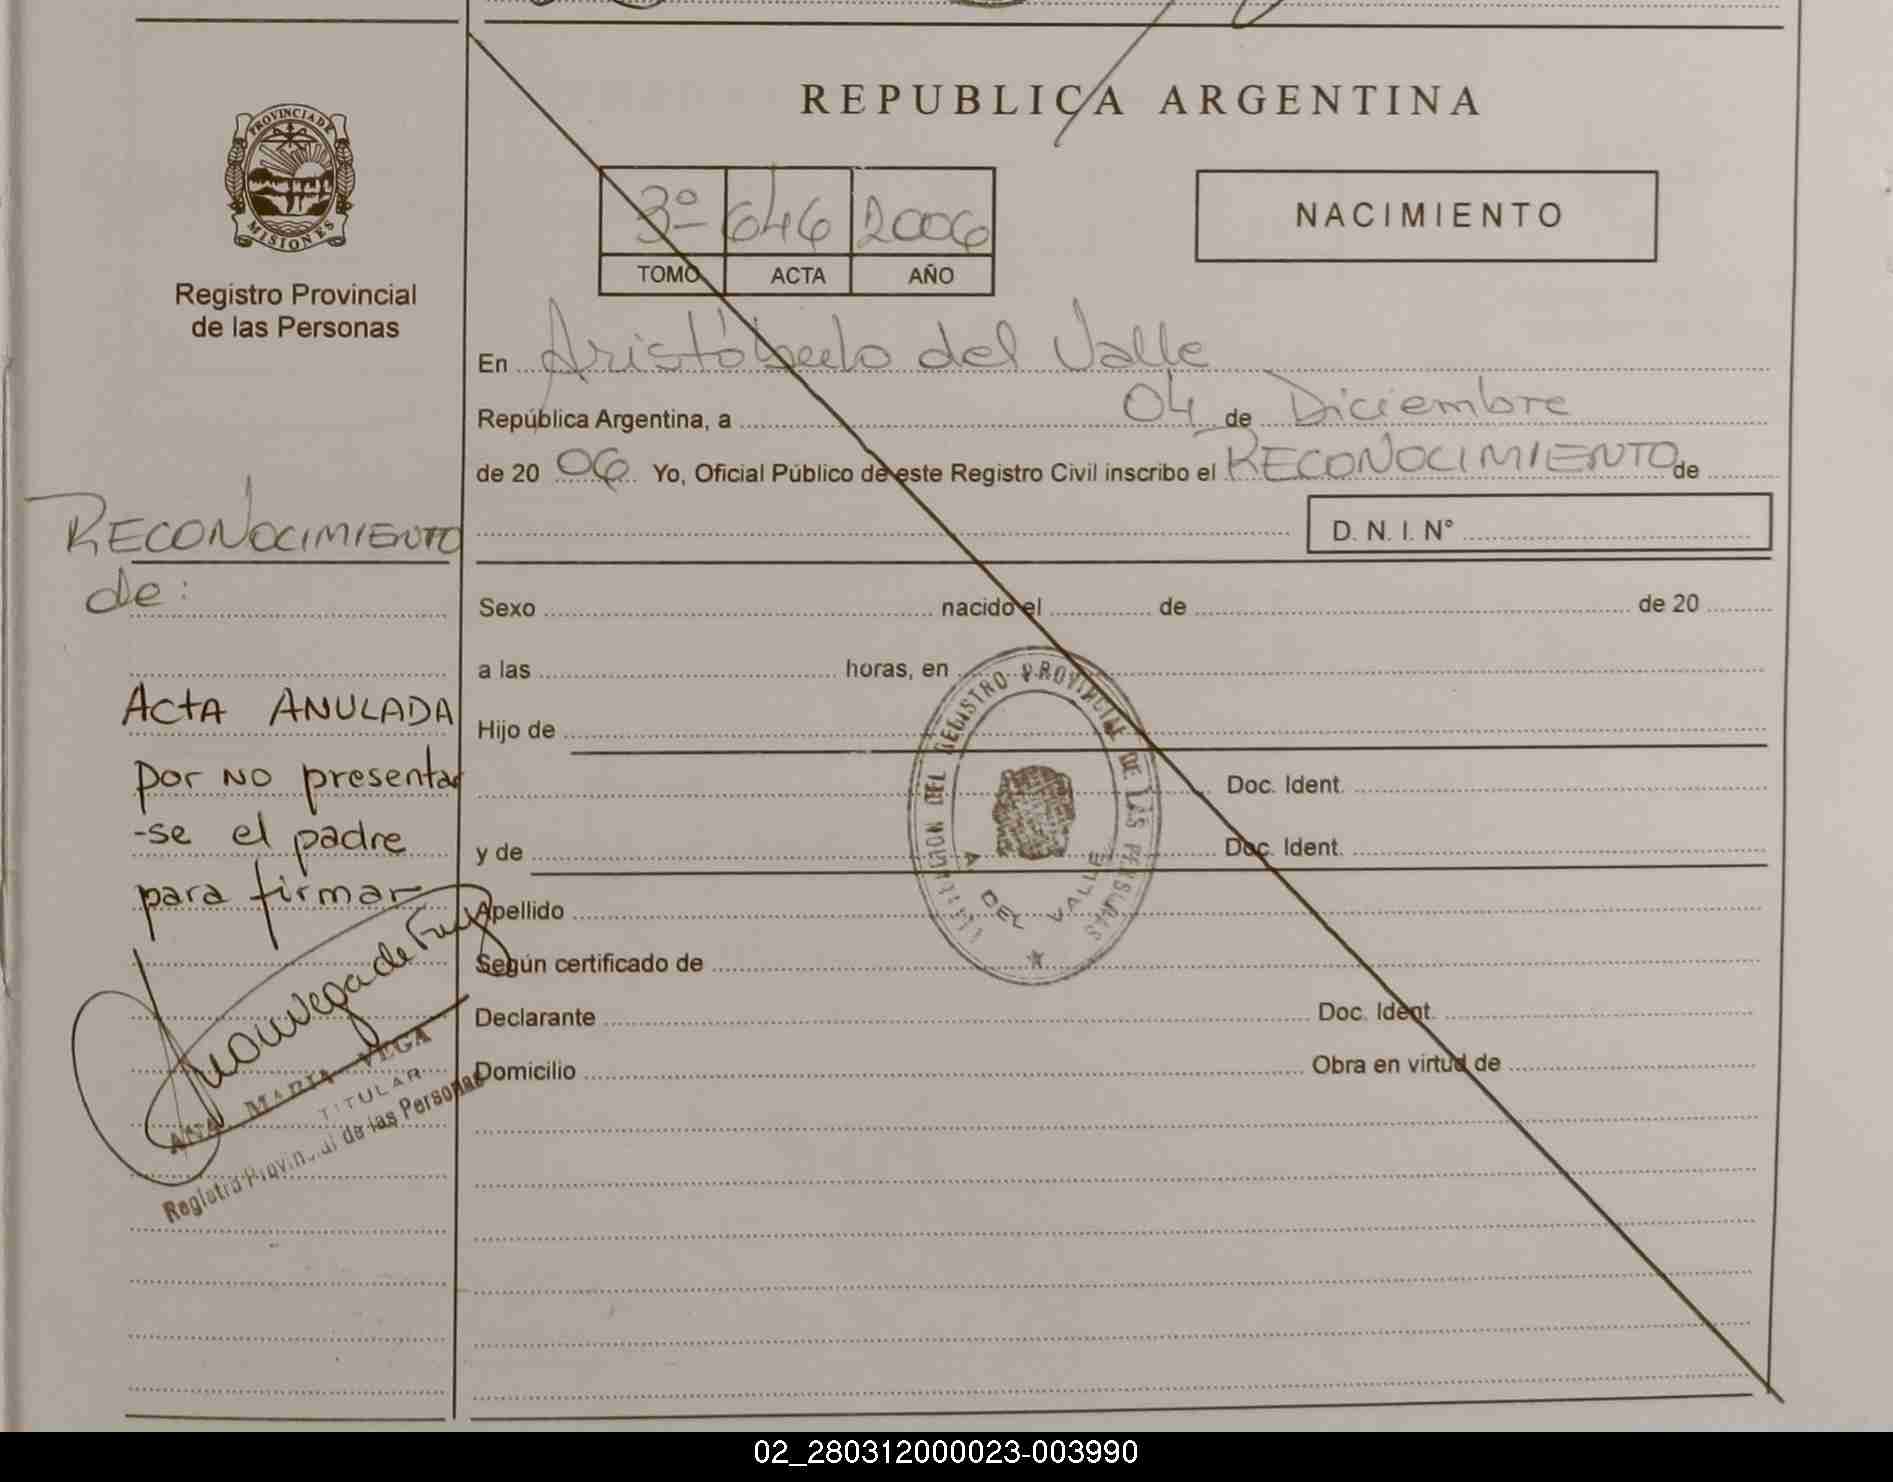 REPUBLICA ARGENTINA
PROVINCIA DE
MISIONES
Registro Provincial
de las Personas
3º 646 2006
TOMO ACTA AÑO
NACIMIENTO
En Aristóbulo del Valle
República Argentina, a 04 de Diciembre
de 20 06 Yo, Oficial Público de este Registro Civil inscribo el RECONOCIMIENTO de
D. N. I. N°
RECONOCIMIENTO
de:
Acta ANULADA
por no presentar
-se el padre
para firmar
ANA MARIA VEGA
TITULAR
Registro Provincial de las Personas
Sexo nacido el de de 20
a las horas, en
Hijo de
Doc. Ident.
y de Doc. Ident.
Apellido
Según certificado de
Declarante Doc. Ident.
Domicilio Obra en virtud de
DEL REGISTRO PROVINCIAL DE LAS PERSONAS
A DEL VALLE
02_280312000023-003990